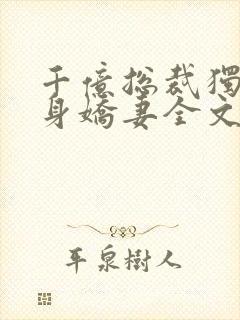 千億總裁獨
身嬌妻全文
平泉樹人